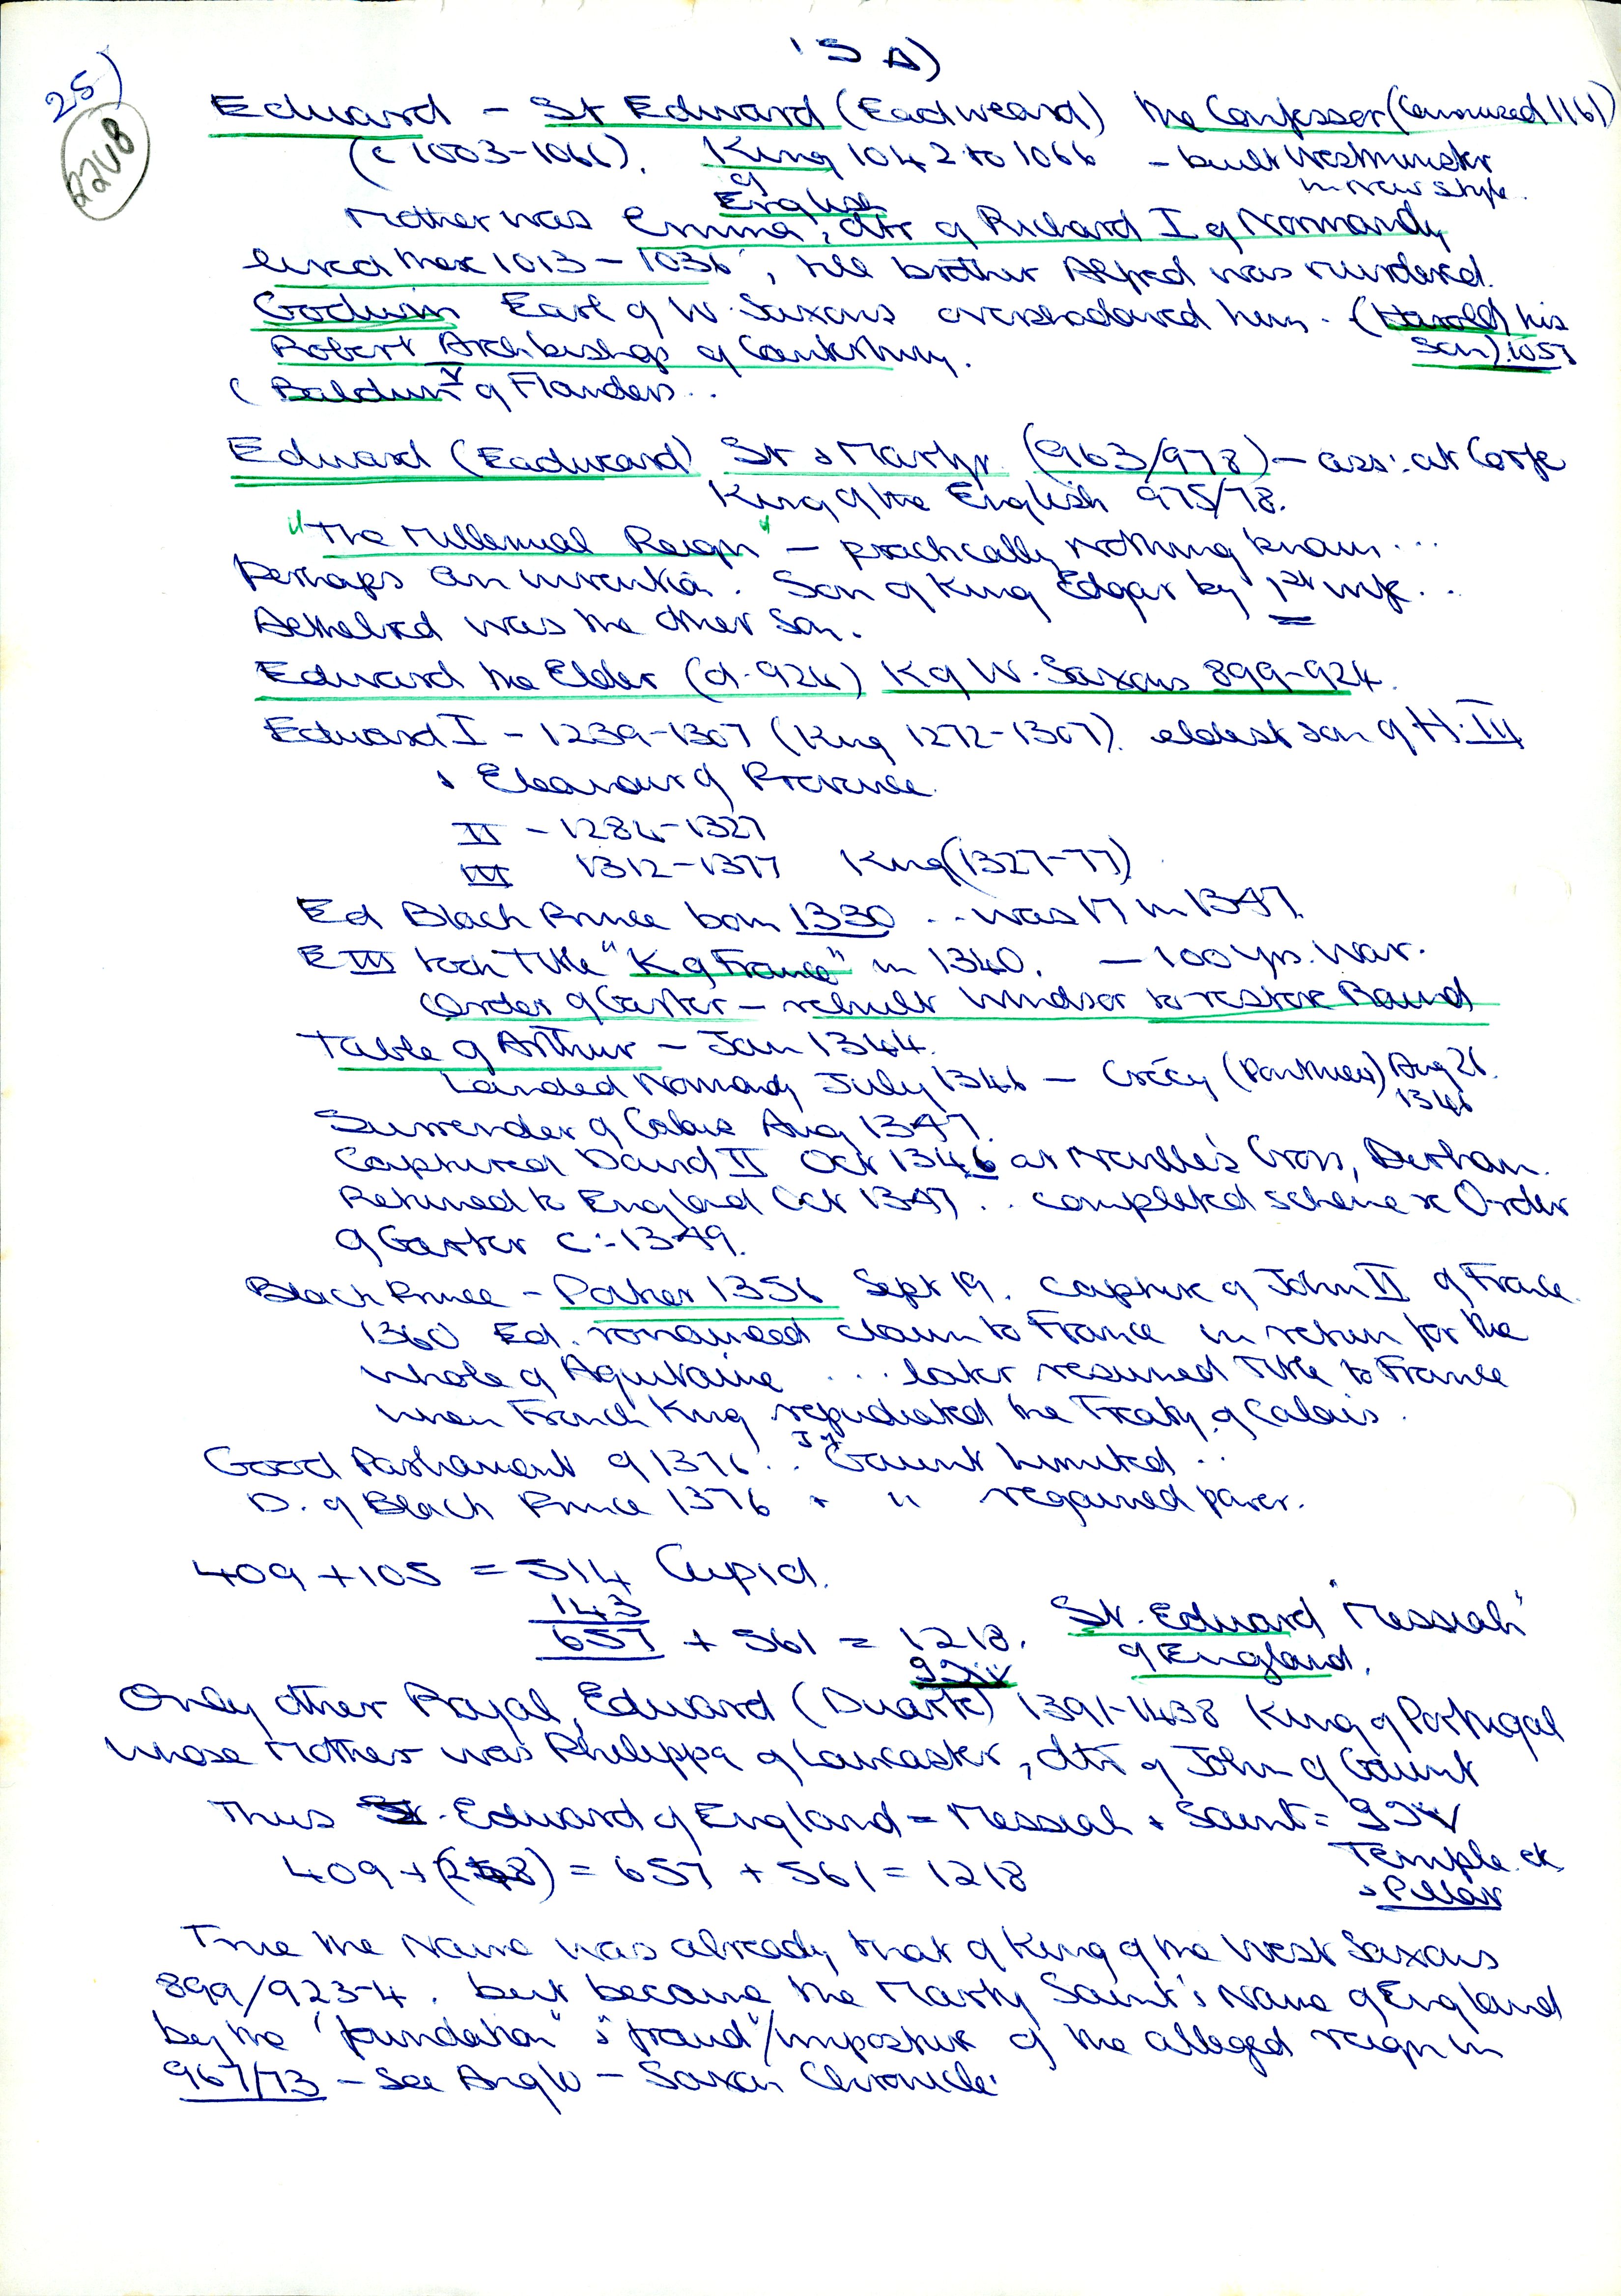 15 A)
25)
2248
Edward - St Edward (Eadweard) the Confessor (Canonized 1161)
(c 1003-1066). King 1042 to 1066 - built Westminster
of English
in new style.
Mother was Emma, dtr of Richard I of Normandy
lived there 1013 - 1036, till brother Alfred was murdered.
Godwin Earl of W. Saxons overshadowed him. (Harold his
son) 1051
Robert Archbishop of Canterbury.
(Baldwin V of Flanders..
Edward (Eadweard) St & Martyr (963/978) - ass: at Corfe
King of the English 975/78.
"The Millennial Reign" - practically nothing known...
perhaps an invention. Son of King Edgar by 1st wife..
Aethelred was the other son.
Edward the Elder (d. 924) K of W. Saxons 899-924.
Edward I - 1239-1307 (King 1272-1307). eldest son of H. III
& Eleanour of Provence.
II - 1284-1327
III 1312-1377 King (1327-77)
Ed Black Prince born 1330 .. was 17 in 1347.
E III took Title "K of France" in 1340. - 100 yrs. War.
Order of Garter - rebuilt Windsor to restore Round
Table of Arthur - Jan 1344.
Landed Normandy July 1346 - Crécy (Ponthieu) Aug 26.
1346
Surrender of Calais Aug 1347.
Captured David II Oct 1346 at Neville's Cross, Durham.
Returned to England Oct 1347 .. completed scheme re Order
of Garter c:- 1349.
Black Prince - Poitiers 1356 Sept 19. Capture of John II of France.
1360 Ed. renounced claim to France in return for the
whole of Aquitaine ... later resumed Title to France
when French King repudiated the Treaty of Calais.
Good Parliament of 1376 .. J of Gaunt limited ..
D. of Black Prince 1376 + " regained power.
409 + 105 = 514 Cupid.
143
657 + 561 = 1218. St. Edward "Messiah"
of England.
Only other Royal, Edward (Duarte) 1391-1438 King of Portugal
whose Mother was Philippa of Lancaster, dtr of John of Gaunt
Thus St. Edward of England = Messiah + Saint =
409 + (248) = 657 + 561 = 1218
Temple etc
& Pillar
True the Name was already that of King of the West Saxons
899/923-4. but became the Martyr Saint's Name of England
by the "foundation" & "fraud"/imposture of the alleged reign in
967/73 - See Anglo - Saxon Chronicle.